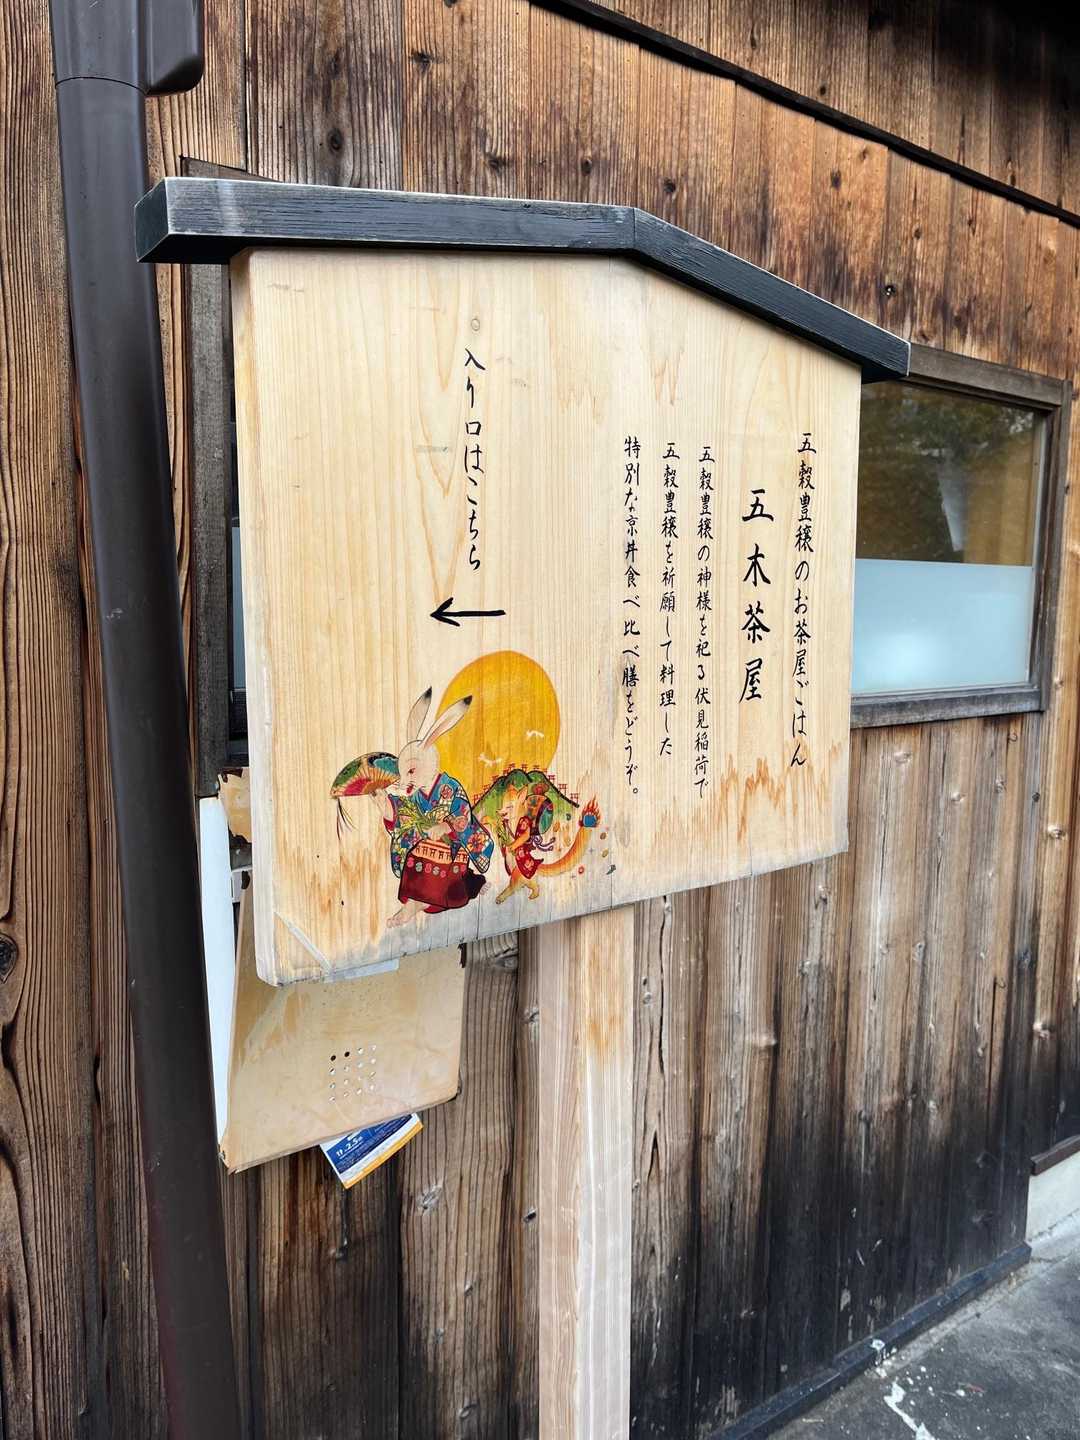 五穀豊穣のお茶屋ごはん
五木茶屋
五穀豊穣の神様を祀る伏見稲荷で
五穀豊穣を祈願して料理した
特別な京丼食べ比べ膳をどうぞ。
入り口はこちら